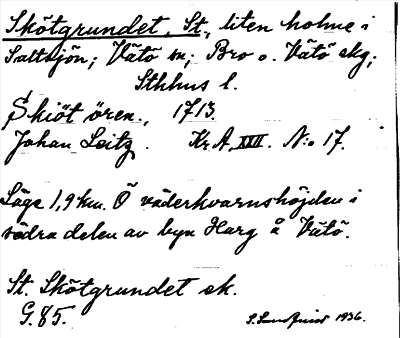 Skötgrundet, St., liten holme i
Saltsjön; Vätö sn; Bro o. Vätö skg;
Sthhus l.
Skiöt ören., 1713.
Johan Leitz. Kr A, XXII. N:o 17.
Läge 1,9 km. Ö väderkvarnshöjden i
södra delen av byn Harg å Vätö.
St. Skötgrundet ek.
G. 85. 1936.